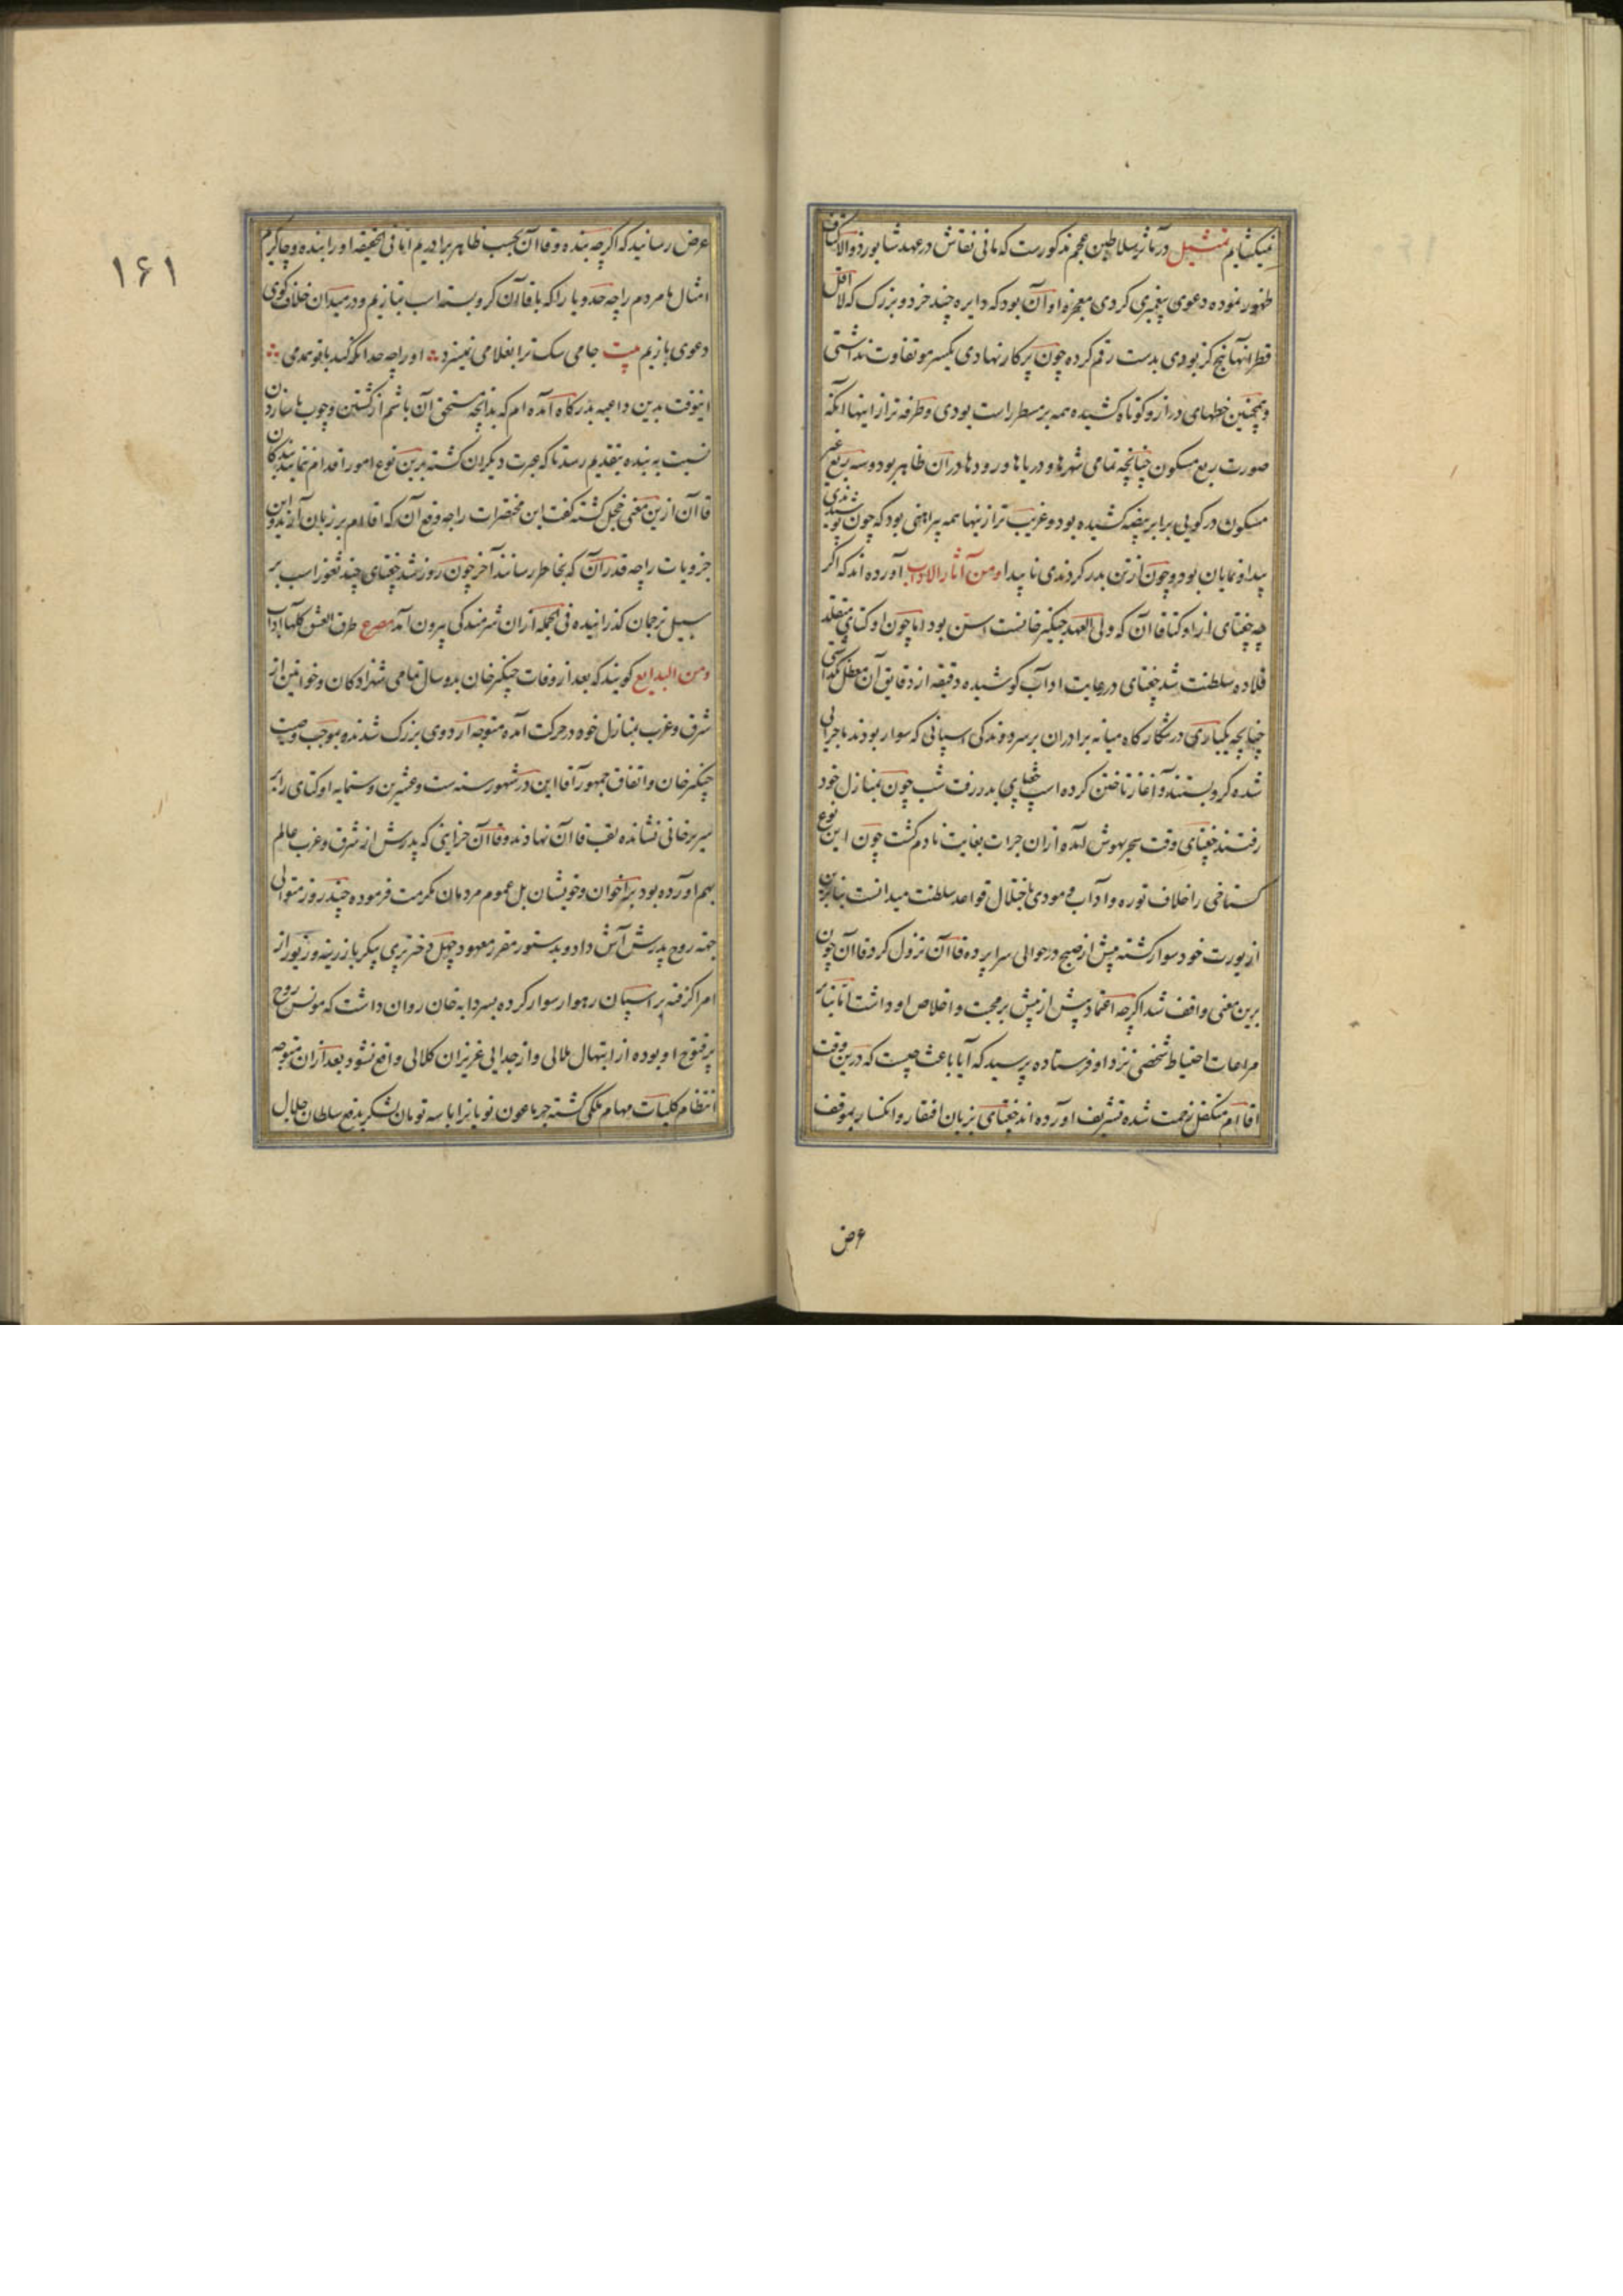 میکشایم تمثیل در مآثر سلاطین عجم مذکورست که مانی نقاش در عهد شاپور ذوالاکتاف
ظهور نموده دعوی پیغمبری کردی معجزه او آن بود که دایره چند خرد و بزرک که لااقل
قطر آنها پنج کز بودی بدست رقم کرده چون پرکار نهادی یکسر مو تفاوت نداشتی
و همچنین خطهای دراز و کوتاه کشیده همه بر مسطر راست بودی و طرفه تر از اینها آنکه
صورت ربع مسکون چنانچه تمامی شهرها و دریاها و رودها در ان ظاهر بود و سه ربع غیر
مسکون در کویی برابر بیضه کشیده بود و غریب تر ازینها همه پیراهنی بود که چون پوشیدندی
پیدا و نمایان بود و چون از تن بدر کردندی ناپیدا و من آثار الاداب آورده اند که اکر
چه چغتای از اوکتا قاآن که ولی العهد چنکیز خانست اسن بود اما چون اوکتای متقلد
قلاده سلطنت شد چغتای در رعایت اداب کوشیده دقیقه از دقایق آن معطل نکذاشتی
چنانچه یکباری در شکارکاه میانه برادران بر سر دوندکی اسپانی که سوار بودند ماجرایی
شده کرو بستند و آغاز تاختن کرده اسپ چغتای بدر رفت شب چون بمنازل خود
رفتند چغتای وقت سحر بهوش آمده از ان جرات بغایت نادم کشت چون این نوع
کستاخی را خلاف توره و آداب و مودی باختلال قواعد سلطنت میدانست بنابرین
از یورت خود سوار کشته پیش از صبح در حوالی سراپرده قاآن نزول کرد قاآن چون
برین معنی واقف شد اکرچه اعتماد بیش از پیش بر محبت و اخلاص او داشت اما بنابر
مراعات احتیاط شخصی نزد او فرستاده پرسید که آیا باعث چیست که درین وقت
اقاام متکفل زحمت شده تشریف آورده اند چغتای بزبان افتقار و انکسار بموقف
عرض
۱۶۱
عرض رسانید که اکرچه بنده و قاآن بحسب ظاهر برادریم اما فی الحقیقه او را بنده و چاکرم
امثال ما مردم را چه حد و یارا که با قاآن کرو بسته اسب بتازیم و در میدان خلاف کوی
دعوی بازیم بیت جامی سک ترا بغلامی نمیسزد او را چه حد آنکه کند با تو همدمی
اینوقت بدین داعیه بدرکاه آمده ام که بدانچه مستحق آن باشم از کشتن و چوب یاسازدن
نسبت به بنده بتقدیم رسد تا که عبرت دیکران کشته برین نوع امور اقدام ننمایند بندکان
قاآن ازین معنی خجل کشته کفت این مختصرات را چه وقع آن که اقاام بر زبان آرند و این
جزویات را چه قدر آن که بخاطر رسانند آخر چون روز شد چغتای چند تغوز اسب بر
سبیل ترجان کذرانیده فی الجمله از ان شرمندکی بیرون آمد مصرع طرق العشق کلها آداب
و من البدایع کویند که بعد از وفات چنکیز خان بدو سال تمامی شهزادکان و خواتین از
شرق و غرب بمنازل خود در حرکت آمده متوجه اردوی بزرک شدند و بموجب وصیت
چنکیز خان و اتفاق جمهور آقا این در شهور سنه ست و عشرین و ستمایه اوکتای را بر
سریر خانی نشانده لقب قاآن نهادند و قاآن خزاینی که پدرش از شرق و غرب عالم
بهم آورده بود بر اخوان و خویشان بل عموم مردمان مکرمت فرموده چند روز متوالی
جهة روح پدرش آش داد و بدستور مقرر معهود چهل دختر پری پیکر با زرینه و زیور از
امرا کرفته بر اسپان رهوار سوار کرده بسرداب خان روان داشت که مونس روح
پرفتوح او بوده از ابتهال ملالی و از جدایی عزیزان کلالی واقع نشود بعد از ان متوجه
انتظام کلیات مهام ملکی کشته جرماغون نویانرا با سه تومان لشکر بدفع سلطان جلال